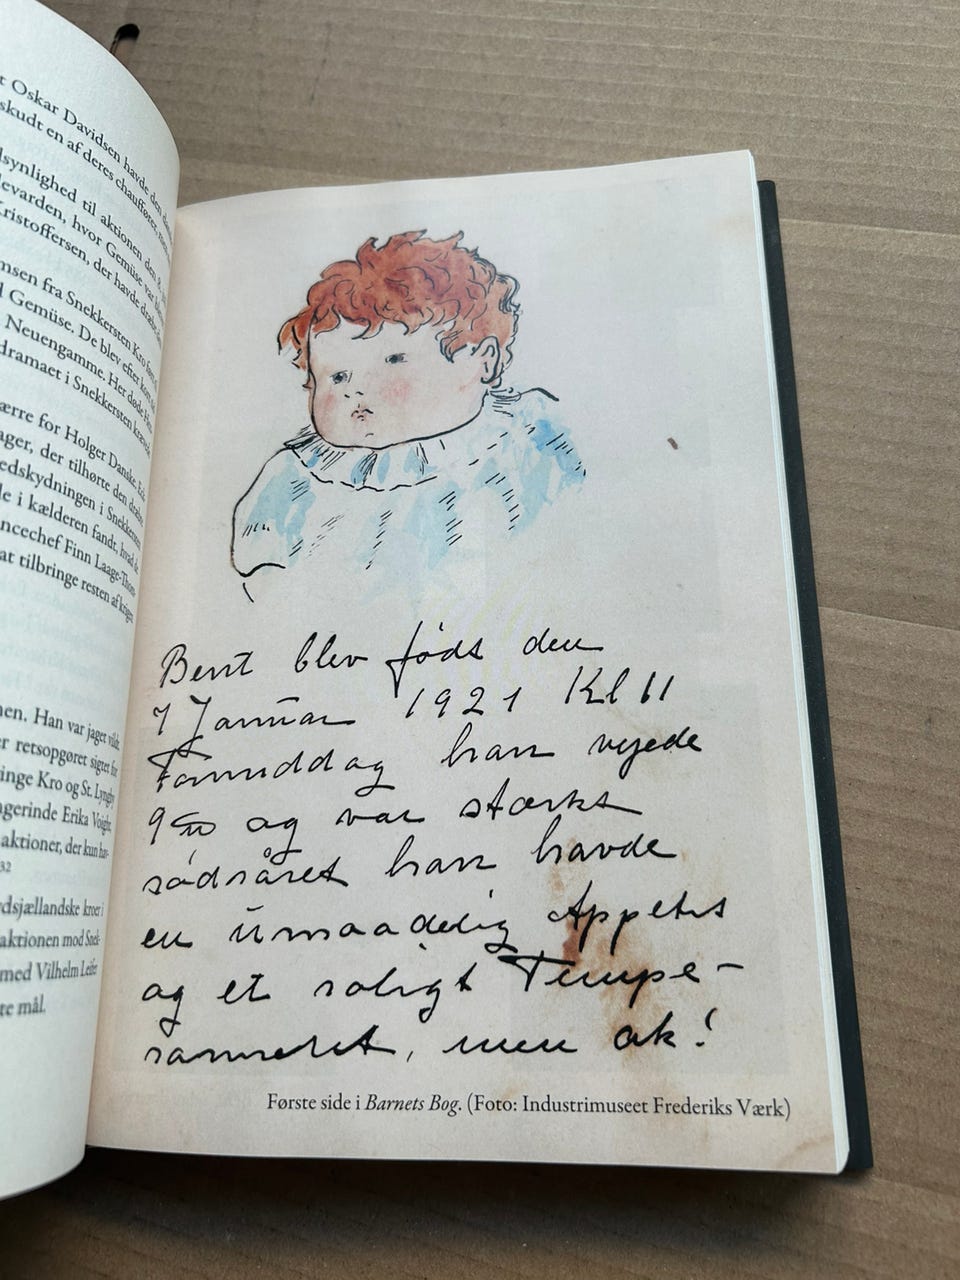 r Oskar Davidsen havde den
skudt en af deres chauffører, med
dsynlighed til aktionen den 8.
levarden, hvor Gemüse var
Kristoffersen, der havde
msen fra Snekkersten Kro
l Gemüse. De blev efter
Neuengamme. Her døde
dramaet i Snekkersten
ærre for Holger Danske.
ager, der tilhørte den
edskydningen i Snekkersten
le i kælderen fandt, hvad
ncechef Finn Laage-Thom-
at tilbringe resten af krigen
nen. Han var jaget vildt.
er retsopgøret sigtet for
inge Kro og St. Lyngby
ngerinde Erika Voigt,
aktioner, der kun har-
32
rdsjællandske kroer i
aktionen mod Snek-
med Vilhelm Leifer
te mål.
Bent blev født den
7 Januar 1921 Kl 11
Formiddag han vejede
og var stærkt
rødhåret han havde
en umaadelig Appetit
og et roligt Tempe-
rament, men ak!
Første side i Barnets Bog. (Foto: Industrimuseet Frederiks Værk)